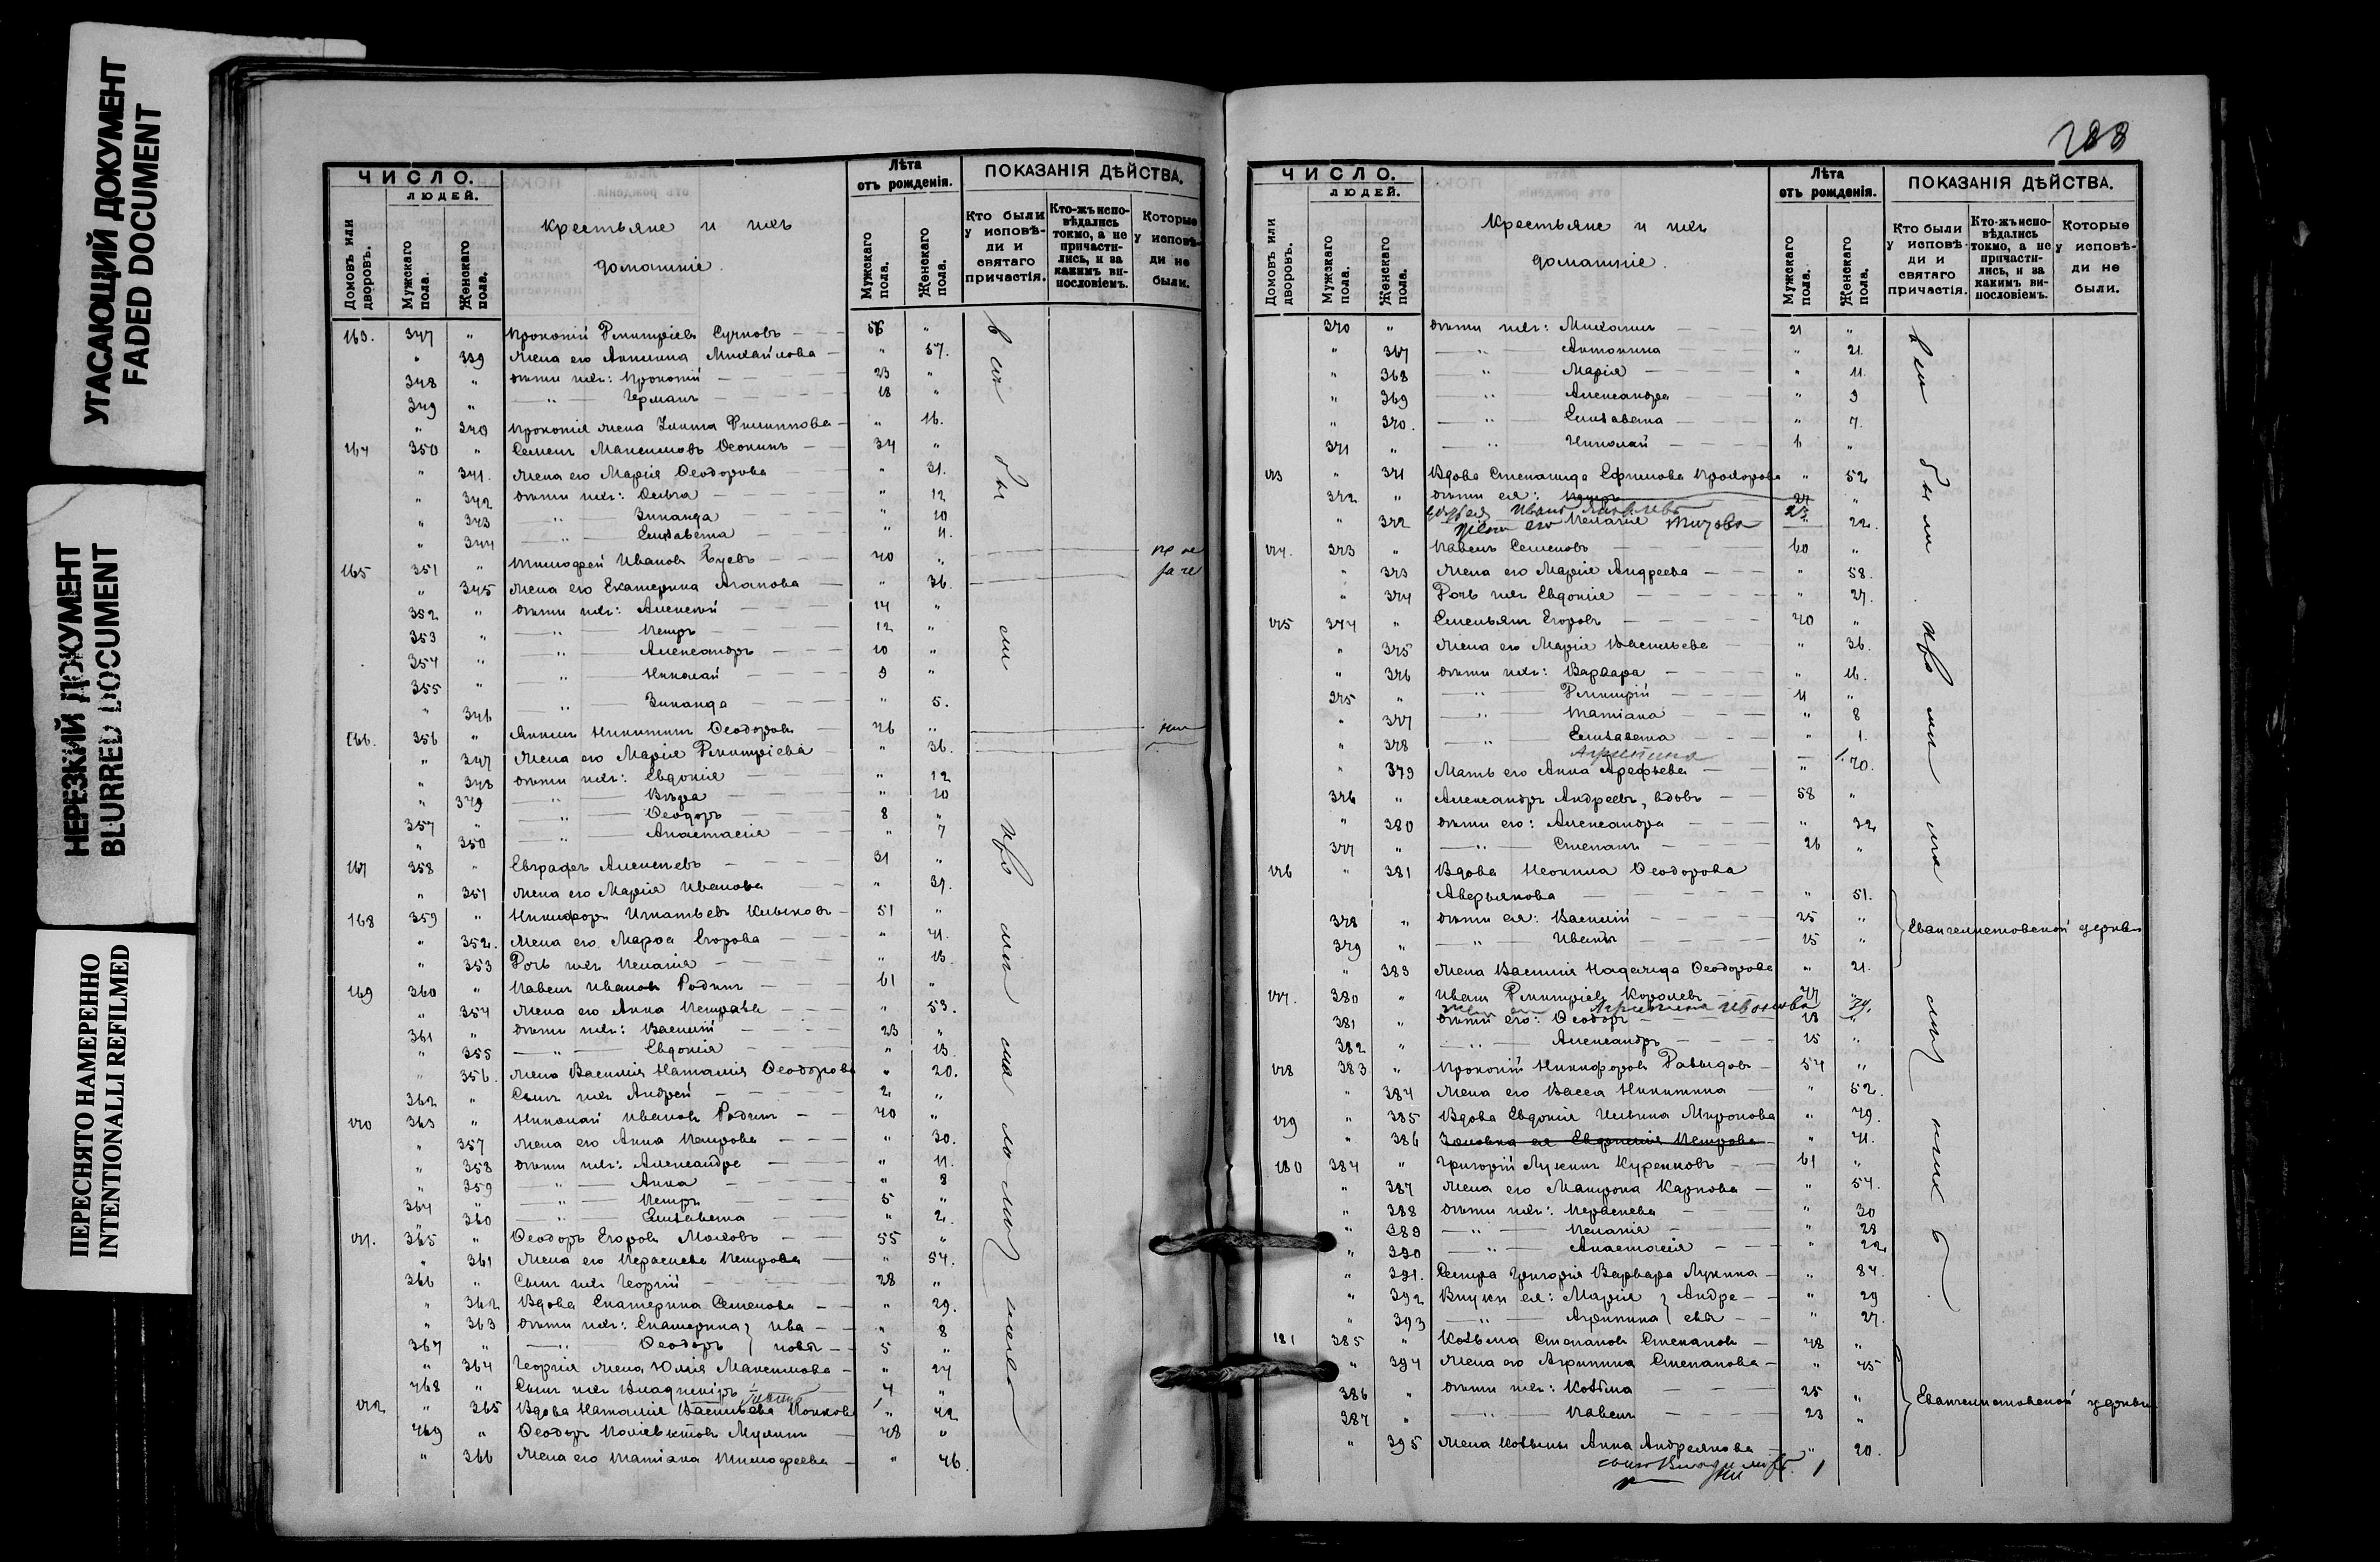 УГАСАЮЩИЙ ДОКУМЕНТ
FADED DOCUMENT
НЕРЕЗКИЙ ДОКУМЕНТ
BLURRED DOCUMENT
ПЕРЕСНЯТО НАМЕРЕННО
INTENTIONALLI REFILMED
ЧИСЛО.
ЛЮДЕЙ.
Домовъ или дворовъ.
Мужскаго пола.
Женскаго пола.
Крестьяне и ихъ
домашніе.
Лѣта
отъ рожденія.
Мужскаго пола.
Женскаго пола.
ПОКАЗАНІЯ ДѢЙСТВА.
Кто были у исповѣди и святаго причастія.
Кто-жъ исповѣдались токмо, а не причастились, и за какимъ винословіемъ.
Которые у исповѣди не были.
163. 347 " Прокопій Димитріевъ Сучковъ "
" 339 Жена его Акилина Михайлова " 57.
348 " Дѣти ихъ: Прокопій 23 "
349 " — " — Германъ 18 "
" 340 Прокопія жена Улита Филиппова " 16.
164 350 " Семенъ Максимовъ Осокинъ 34 "
" 341. Жена его Марія Ѳеодорова " 31.
" 342 Дѣти ихъ: Ольга " 12
" 343 — " — Зинаида " 10
" 344 — " — Елизавета "
165 351 " Тимоѳей Ивановъ 40 "
" 345 Жена его Екатерина Агапова " 36.
352 " Дѣти ихъ: Алексѣй 14 "
353 " — " — Петръ 12 "
354 " — " — Александръ 10 "
355 " — " — Николай 9 "
" 346 — " — Зинаида " 5.
166. 356 " Никитинъ Ѳеодоровъ 46 "
" 347 Жена его Марія Димитріева " 36.
" 348 Дѣти ихъ: Евдокія " 12
" 349 — " — Вѣра " 10
357 " — " — Ѳеодоръ 8 "
" 350 — " — Анастасія " 7
167 358 " Евграфъ Алексѣевъ 31 "
" 351 Жена его Марія Иванова " 31.
168 359 " Никифоръ Игнатьевъ 51 "
" 352. Жена его Марѳа Егорова " 41.
" 353 Дочь ихъ Пелагія " 13.
169 360 " Павелъ Ивановъ Родинъ 61 "
" 354 Жена его Анна Петрова " 53.
361 " Дѣти ихъ: Василій 23 "
" 355 — " — Евдокія " 13.
" 356. Жена Василія Наталія Ѳеодорова " 20.
362 " Сынъ ихъ Андрей 2 "
170 363 " Николай Ивановъ Родинъ 40 "
" 357 Жена его Анна Петрова " 30.
" 358 Дѣти ихъ: Александра " 11.
" 359 — " — Анна " 8
364 " — " — Петръ 5 "
" 360 — " — Елизавета " 2.
171. 365 " Ѳеодоръ Егоровъ 55 "
" 361 Жена его Параскева Петрова " 54.
366 " Сынъ ихъ Георгій 28 "
" 362 Вдова Екатерина Семенова " 29.
" 363 Дѣти ихъ: Екатерина } Ива- " 8
367 " — " — Ѳеодоръ } новы 5 "
" 364 Георгія жена Юлія Максимова " 27
468 " Сынъ ихъ Владиміръ 4 "
172 " 365 Вдова Наталія Васильева " 42
469 " Ѳеодоръ Поліевктовъ 48 "
" 366 Жена его Татіана Тимоѳеева " 46.
288
ЧИСЛО.
ЛЮДЕЙ.
Домовъ или дворовъ.
Мужскаго пола.
Женскаго пола.
Крестьяне и ихъ
домашніе.
Лѣта
отъ рожденія.
Мужскаго пола.
Женскаго пола.
ПОКАЗАНІЯ ДѢЙСТВА.
Кто были у исповѣди и святаго причастія.
Кто-жъ исповѣдались токмо, а не причастились, и за какимъ винословіемъ.
Которые у исповѣди не были.
370 " Дѣти ихъ: Михаилъ 21 "
" 367 — " — Антонина " 21.
" 368 — " — Марія " 11.
" 369 — " — Александра " 9
" 370. — " — Елизавета " 7.
371 " — " — Николай "
173 " 371 Вдова Степанида Ефимова Прохорова " 52
372 " Дѣти ея: Петръ 27 "
" 372 Жена его Пелагія " 22.
174. 373 " Павелъ Семеновъ 60 "
" 373 Жена его Марія Андреева " 58.
" 374 Дочь ихъ Евдокія " 27.
175 374 " Емельянъ Егоровъ 40 "
" 375 Жена его Марія Васильева " 36.
" 376 Дѣти ихъ: Варвара " 16.
375 " — " — Димитрій 11 "
" 377 — " — Татіана " 8
" 378 — " — Елизавета " 1.
Агрипина
" 379 Мать его Анна Арефьева " 70.
376 " Александръ Андреевъ, вдовъ 58 "
" 380 Дѣти его: Александра " 32
377 " — " — Степанъ 26 "
176 " 381 Вдова Неонила Ѳеодорова
Аверьянова " 51.
378 " Дѣти ея: Василій 25 "
379 " — " — Иванъ 15 "
" 383 Жена Василія Надежда Ѳеодорова " 21.
Евангелистовской церкви
177. 380 " Иванъ Димитріевъ Королевъ 47 "
Агрипина Иванова
381 " Дѣти его: Ѳеодоръ 18 "
382 " — " — Александръ 15 "
178 383 " Прокопій Никифоровъ Давыдовъ 54 "
" 384 Жена его Васса Никитина " 52.
179 " 385 Вдова Евдокія Ильина Миронова " 49.
" 386 Золовка ея Евдокія Петрова " 41.
180 384 " Григорій Лукинъ Куренковъ 61 "
" 387 Жена его Матрона Карпова " 54.
" 388 Дѣти ихъ: Параскева " 30
" 389 — " — Пелагія " 28
" 390 — " — Анастасія " 22
" 391. Сестра Григорія Варвара Лукина " 84.
" 392 Внуки ея: Марія } Андре- " 29
" 393 — " — Агрипина } евы " 27.
181 385 " Козьма Степановъ Степановъ 48 "
" 394 Жена его Агрипина Степанова " 45
386 " Дѣти ихъ: Козьма 25 "
387 " — " — Павелъ 23 "
" 395 Жена Козьмы Анна Андреянова " 20.
Евангелистовской церкви
сынъ Владиміръ 1